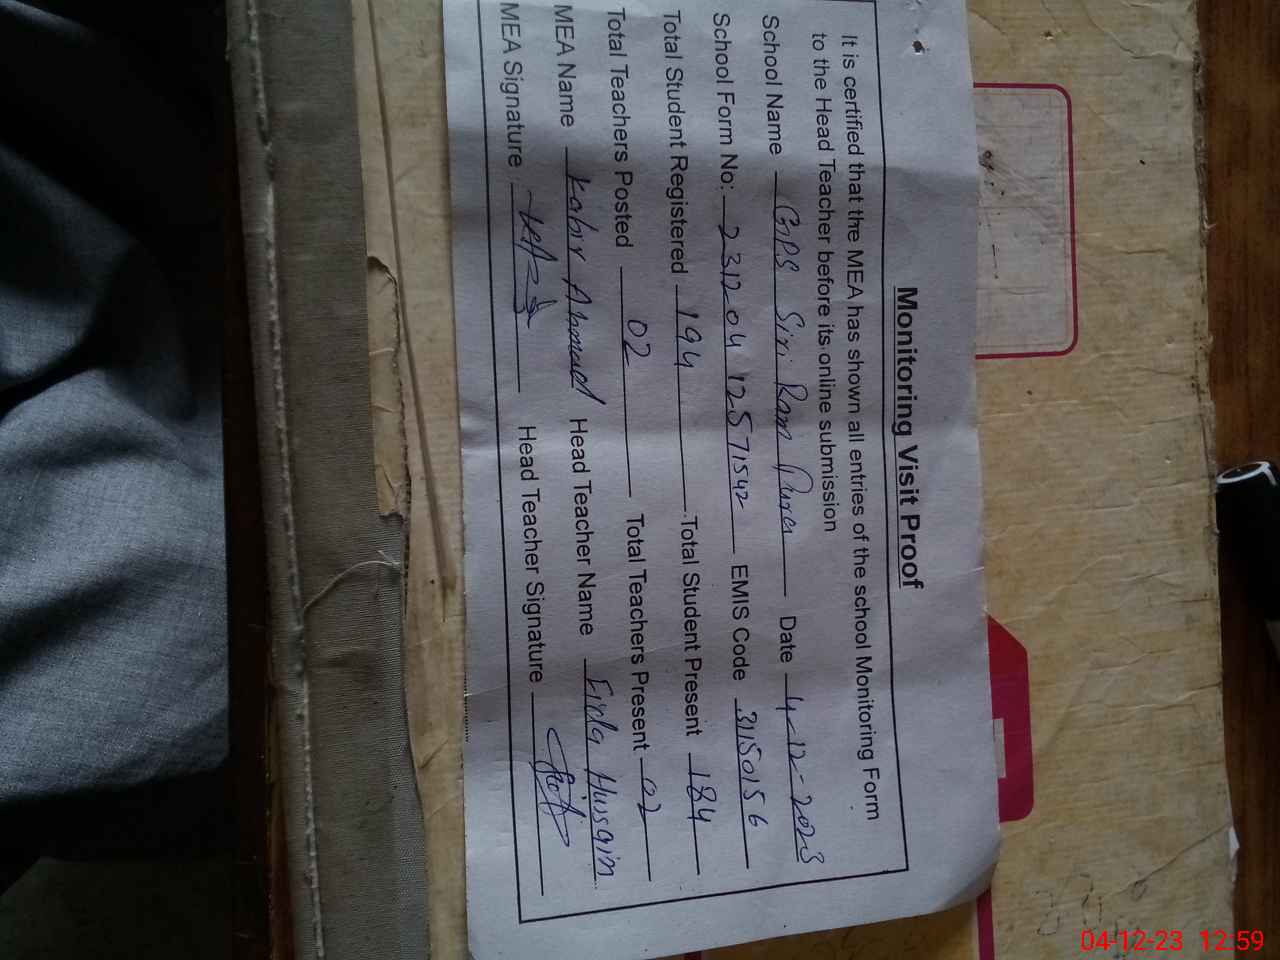 Monitoring Visit Proof
It is certified that the MEA has shown all entries of the school Monitoring Form
to the Head Teacher before its online submission
School Name GPS Siri Ram Pura Date 4-12-2023
School Form No: 2312041 12571542 EMIS Code 31150156
Total Student Registered 194 Total Student Present 184
Total Teachers Posted 02 Total Teachers Present 02
MEA Name Kabir Ahmed Head Teacher Name Fida Hussain
MEA Signature Head Teacher Signature
04-12-23 12:59